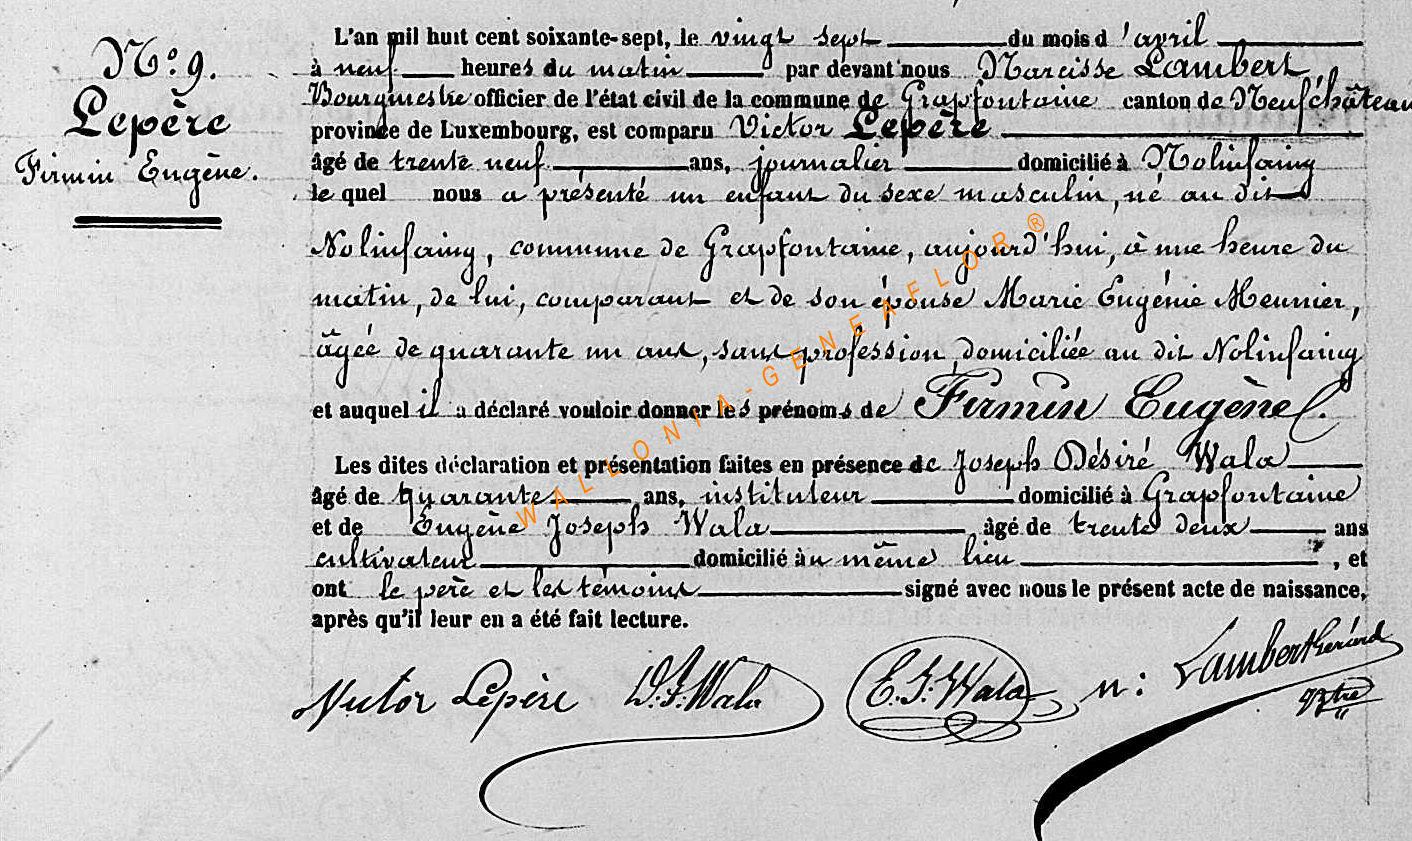 N.º 9.
Lepère
Firmin Eugène.
L'an mil huit cent soixante-sept, le vingt sept du mois d'avril
à neuf heures du matin par devant nous Narcisse Lambert
Bourgmestre officier de l'état civil de la commune de Grapfontaine canton de Neufchâteau
province de Luxembourg, est comparu Victor Lepère
âgé de trente neuf ans, journalier domicilié à Nolinfaing
le quel nous a présenté un enfant du sexe masculin, né au dit
Nolinfaing, commune de Grapfontaine, aujourd'hui, à une heure du
matin, de lui, comparant et de son épouse Marie Eugénie Meunier,
âgée de quarante un ans, sans profession, domiciliée au dit Nolinfaing
et auquel il a déclaré vouloir donner les prénoms de Firmin Eugène.
Les dites déclaration et présentation faites en présence de Joseph Désiré Wala
âgé de quarante ans, instituteur domicilié à Grapfontaine
et de Eugène Joseph Wala âgé de trente deux ans
cultivateur domicilié au même lieu , et
ont le père et les témoins signé avec nous le présent acte de naissance,
après qu'il leur en a été fait lecture.
Victor Lepère D. J. Wala E. J. Wala n: Lambert Gérard
WALLONIA-GENEAFLOR ®